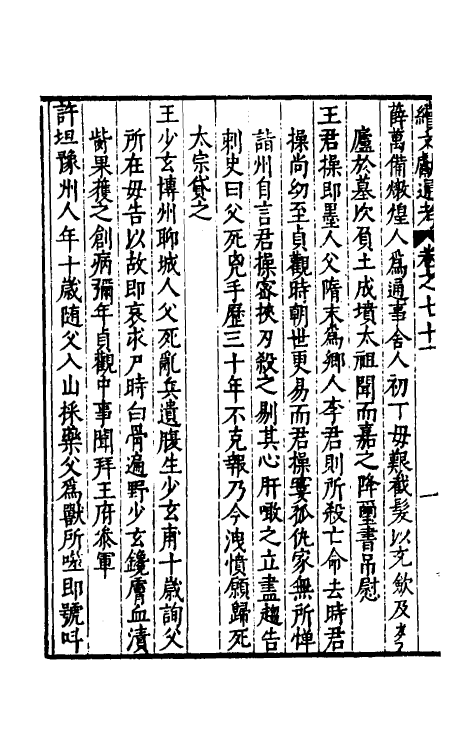 續文獻通考 卷之七十一 一
薛萬備燉煌人爲通事舍人初丁母艱截髮以充歛及
廬於墓次負土成墳太祖聞而嘉之降璽書吊慰
王君操即墨人父隋末爲鄉人李君則所殺亡命去時君
操尚幼至貞觀時朝世更易而君操窶孤仇家無所憚
詣州自言君操密挾刃殺之剔其心肝噉之立盡趨告
刺史曰父死兇手歷三十年不克報乃今洩憤願歸死
太宗貸之
王少玄博州聊城人父死亂兵遺腹生少玄甫十歲詢父
所在母告以故即哀求尸時白骨遍野少玄鑱膚血漬
而果獲之創病彌年貞觀中事聞拜王府叅軍
許坦豫州人年十歲随父入山採藥父爲獸所噬即號呌